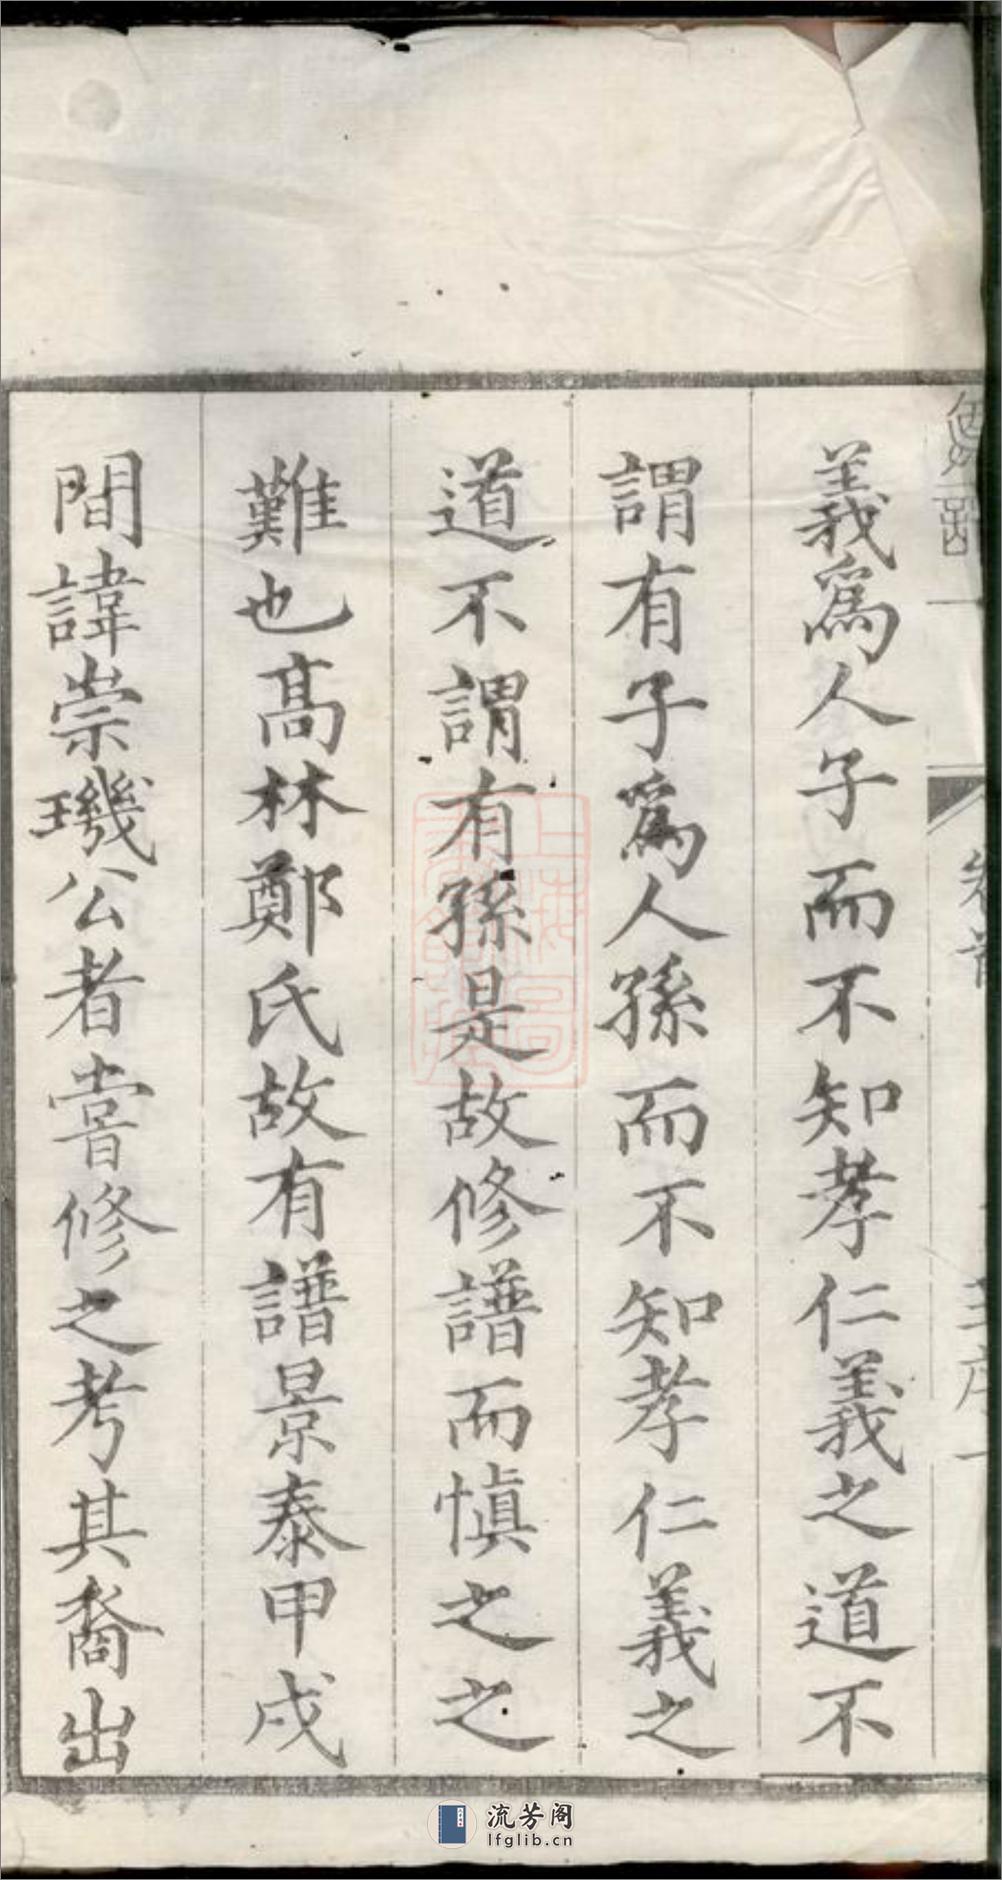 義爲人子而不知孝仁義之道不
謂有子爲人孫而不知孝仁義之
道不謂有孫是故修譜而慎之之
難也髙林鄭氏故有譜景泰甲戌
間諱崇璣公者甞修之考其裔出
流芳阁
lfglib.cn